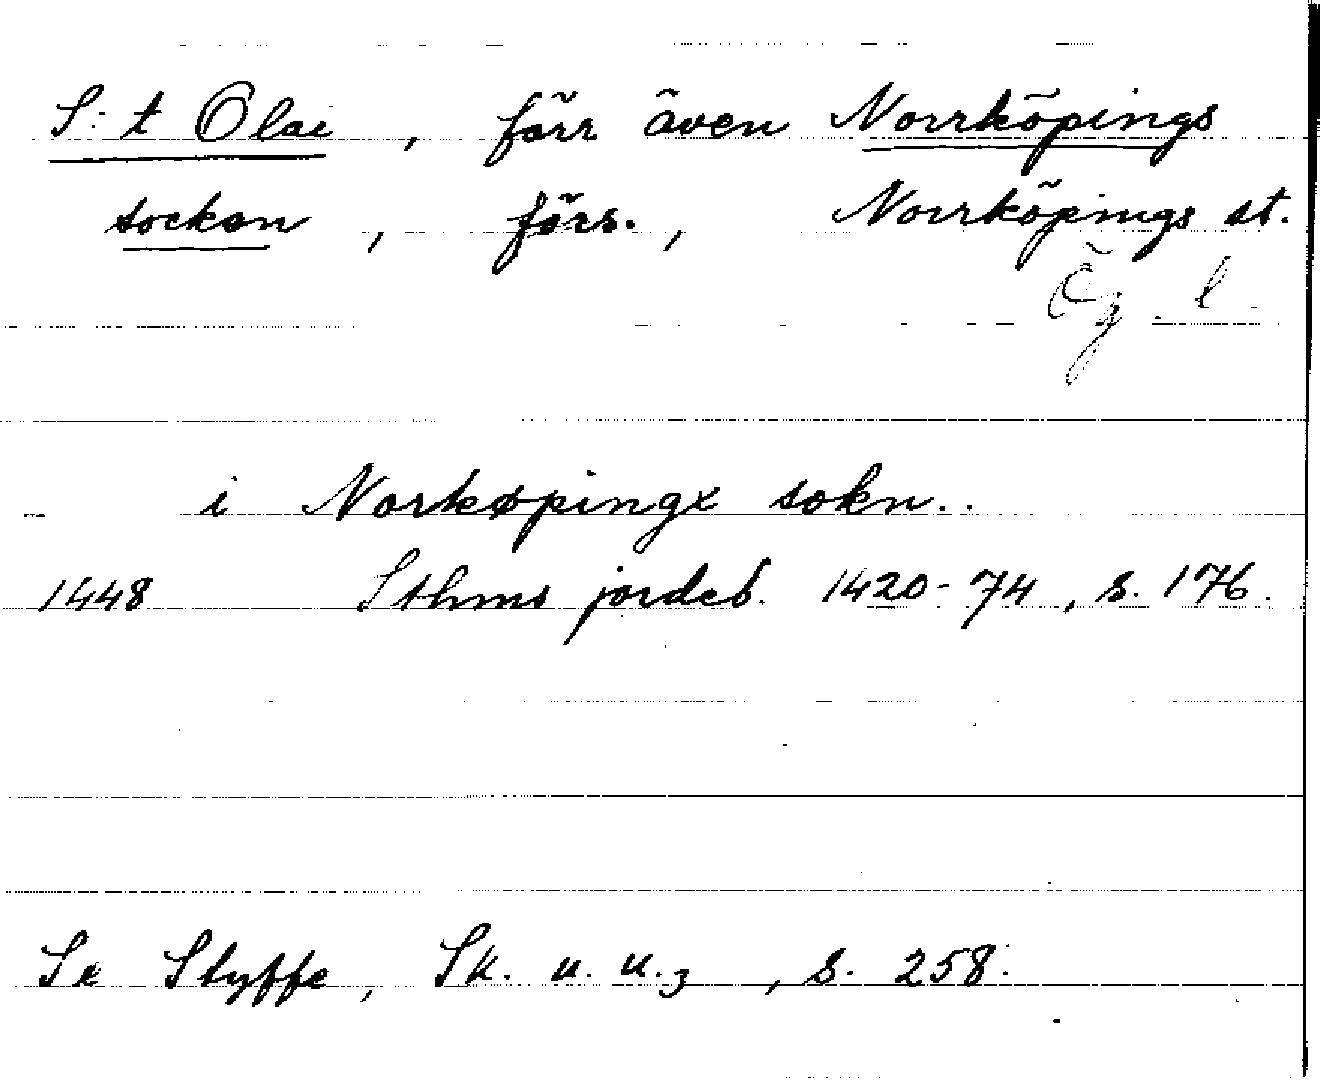 S:t Olai, förr även Norrköpings
socken, förs., Norrköpings st.
Ög. l.
i Norkøpingx sokn..
1448 Sthms jordeb. 1420-74, s. 176.
Se Styffe, Sk. u. u.3, s. 258.